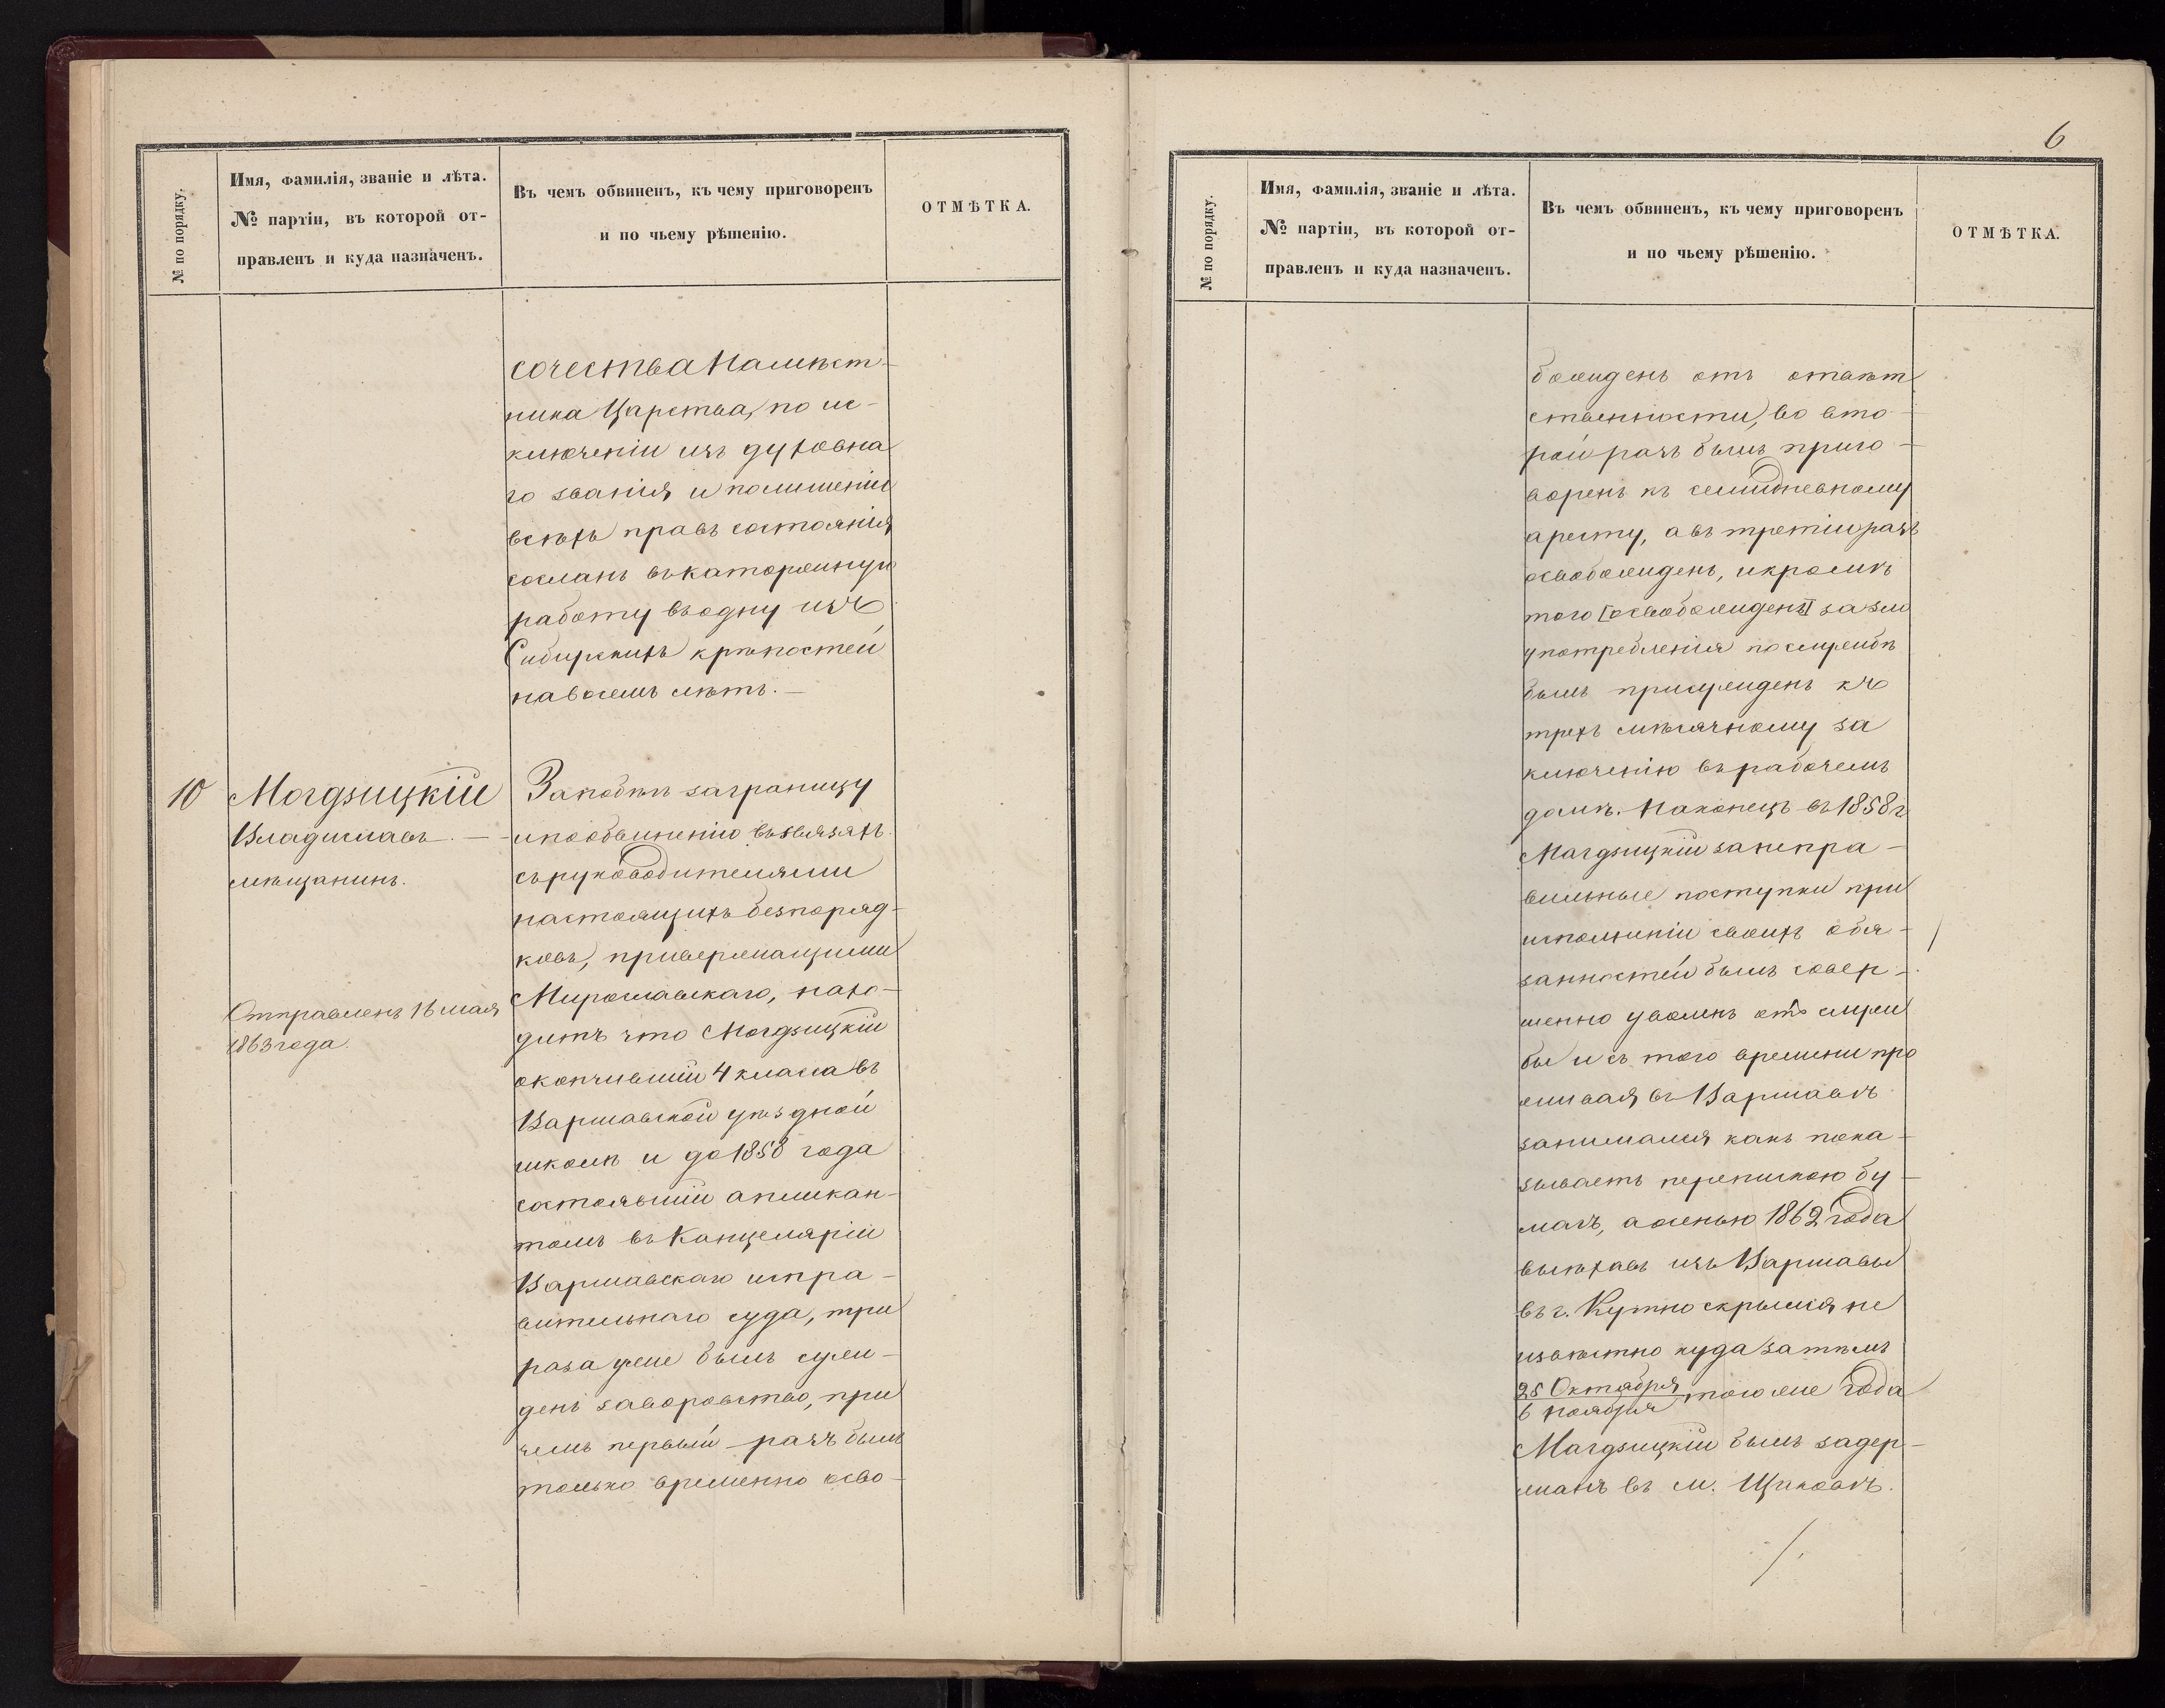 № по порядку.
Имя, фамилія, званіе и лѣта.
№ партіи, въ которой от-
правленъ и куда назначенъ.
Въ чемъ обвиненъ, къ чему приговоренъ
и по чьему рѣшенію.
ОТМѢТКА.
сочества Намѣст-
ника Царства, по ис-
ключеніи изъ духовна
го званія и полишеніи
всѣхъ правъ состоянія
сосланъ въ каторжную
работу въ одну изъ
Сибирскихъ крѣпостей
на восемь лѣтъ. —
10
Могдзицкій
Владиславъ. —
мѣщанинъ.
Отправленъ 16 мая
1863 года.
За побѣгъ заграницу
и по обвиненію въ связяхъ
съ руководителями
настоящихъ безпоряд-
ковъ, приверженцами
Мирославскаго, нахо-
дитъ что Могдзицкій
окончившій 4 класса въ
Варшавской уѣздной
школѣ и до 1858 года
состоявшій апликан-
томъ въ Канцеляріи
Варшавскаго испра-
вительнаго суда, три
раза уже былъ суж-
денъ за воровство, при
чемъ первый разъ былъ
только временно осво-
6
№ по порядку.
Имя, фамилія, званіе и лѣта.
№ партіи, въ которой от-
правленъ и куда назначенъ.
Въ чемъ обвиненъ, къ чему приговоренъ
и по чьему рѣшенію.
ОТМѢТКА.
божденъ отъ отвѣт
ственности, во вто-
рой разъ былъ приго-
воренъ къ семидневному
аресту, а въ третій разъ
освобожденъ, и кромѣ
того [освобожденъ] за зло
употребленія по службѣ
былъ присужденъ къ
трехъ мѣсячному за
ключенію въ рабочемъ
домѣ. Наконецъ въ 1858 г
Магдзицкій за непра-
вильные поступки при
исполненіи своихъ обя-
занностей былъ совер-
шенно уволенъ отъ служ
бы и съ того времени про
живая въ Варшавѣ
занимался какъ пока-
зываетъ перепискою бу-
магъ, а осенью 1862 года
выѣхавъ изъ Варшавы
въ г. Кутно скрылся не
извѣстно куда затѣмъ
25 Октября
6 Ноября того же года
Магдзицкій былъ задер-
жанъ въ м. Щаковѣ.